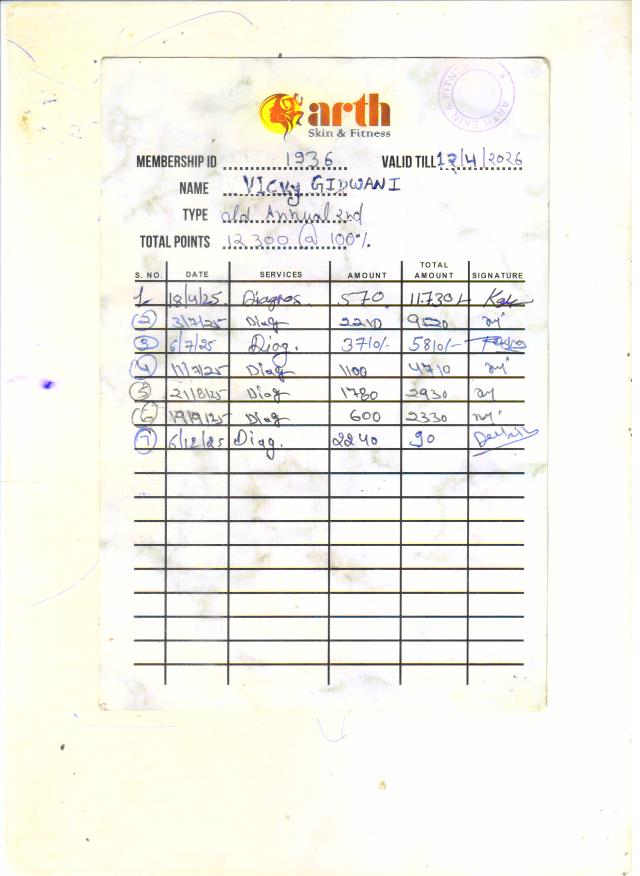 arth
Skin & Fitness
MEMBERSHIP ID 1936 VALID TILL 17/4/2026
NAME VICKY GIDWANI
TYPE old Annual 2nd
TOTAL POINTS 12300 @ 100%
S. NO. DATE SERVICES AMOUNT TOTAL AMOUNT SIGNATURE
1 18/4/25. Diagnos. 570 11.730/-
2 3/7/25 Diag 2210 9520
3 6/7/25 Diag. 3710/- 5810/-
4 17/7/25 Diag 1100 4710
5 21/8/25 Diag 1780 2930
6 19/9/25 Diag 600 2330
7 6/12/25 Diag. 2240 90